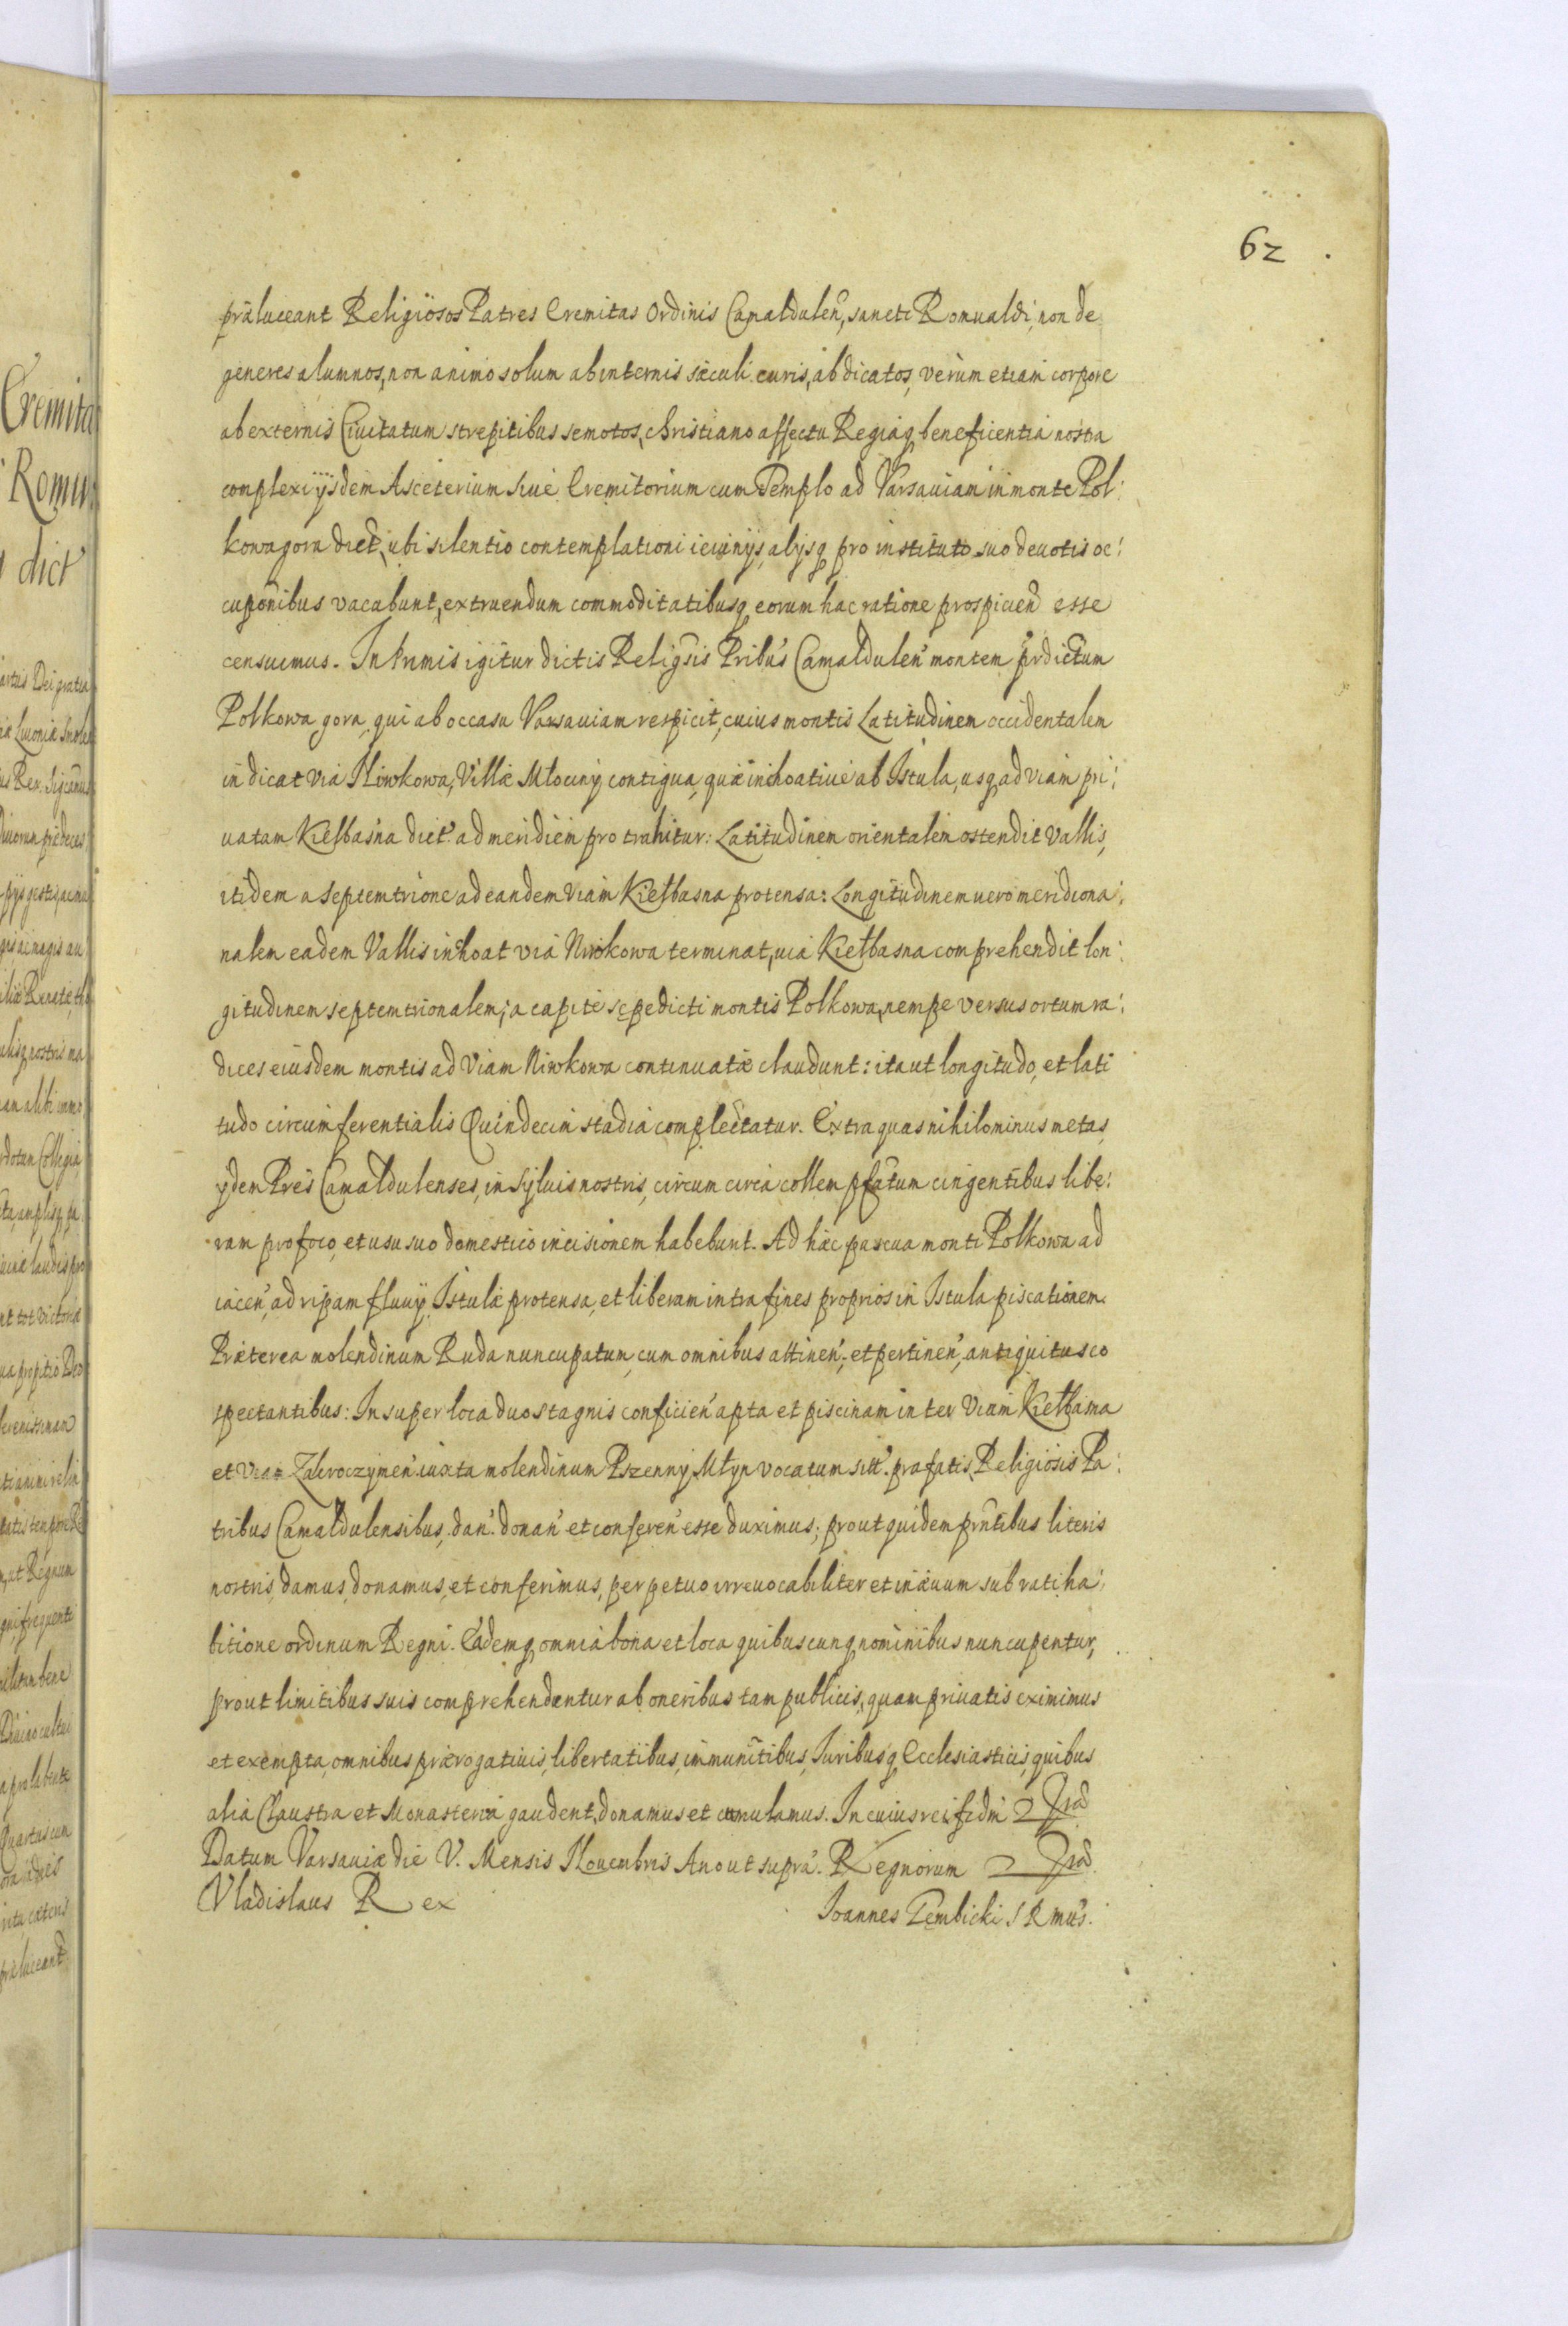 62
præluceant Religiosos Patres Eremitas Ordinis Camaldulen̄, sancti Romualdi, non de
generes alumnos, non animo solum ab internis sæculi curis, abdicatos, verùm etiam corpore
ab externis Ciuitatum strepitibus semotos, christiano affectu Regiaq beneficentia nostra
complexi ijsdem Asceterium siue Eremitorium cum Templo ad Varsauiam in monte Pol:
kowa gora dict, ubi silentio contemplationi ieiunijs, alijsq pro instituto suo deuotis oc:
cuponibus vacabunt, extruendum commoditatibusq eorum hac ratione prospicien̄ esse
censuimus. In Primis igitur dictis Religsis Pribus Camaldulen' montem prdictum
Polkowa gora, qui ab occasu Varsauiam respicit, cuius montis Latitudinem occidentalem
indicat via Niwkowa, Villæ Młociny contigua, quæ inchoatiuè ab Istula, usq ad viam pri:
uatam Kiełbasna dict' ad meridiem protrahitur: Latitudinem orientalem ostendit Vallis,
itidem a septemtrione ad eandem viam Kiełbasna protensa: Longitudinem uero meridiona:
nalem eadem Vallis inchoat via Niwkowa terminat, uia Kiełbasna comprehendit lon:
gitudinem septemtrionalem; a capite sępedicti montis Polkowa, nempe versus ortum ra:
dices eiusdem montis ad Viam Niwkowa continuatæ claudunt: ita ut longitudo, et lati
tudo circumferentialis Quindecim stadia complectatur. Extra quas nihilominus metas,
ydem Pres Camaldulenses, in syluis nostris, circum circa collem pfatum cingentibus libe:
ram pro foco, et usu suo domestico incisionem habebunt. Ad hæc pascua monti Polkowa ad
iacen', ad ripam fluuij Istulæ protensa, et liberam intra fines proprios in Istula piscationem.
Præterea molendinum Ruda nuncupatum, cum omnibus attinen', et pertinen', antiquitus eo
spectantibus: Insuper loca duo stagnis conficien' apta et piscinam inter Viam Kiełbasna
et Viam Zakroczymen' iuxta molendinum Pszenny Młyn vocatum sitt'. prafatis Religiosis Pa:
tribus Camaldulensibus, dan'. donan' et conferen' esse duximus; prout quidem prntibus literis
nostris, damus, donamus, et conferimus, perpetuo irreuocabiliter et in æuum sub ratiha:
bitione ordinum Regni. Eademq omnia bona et loca quibuscunq nominibus nuncupentur,
prout limitibus suis comprehendantur ab oneribus tam publicis, quam priuatis eximimus
et exempta, omnibus prærogatiuis, libertatibus, immunitibus, Iuribusq Ecclesiasticis, quibus
alia Claustra et Monasteria gaudent, donamus et cumulamus. In cuius rei fidm
Datum Varsauiæ die V. Mensis Nouembris Ano ut supra. Regnorum
Vladislaus Rex
Ioannes Gembicki S R mus.